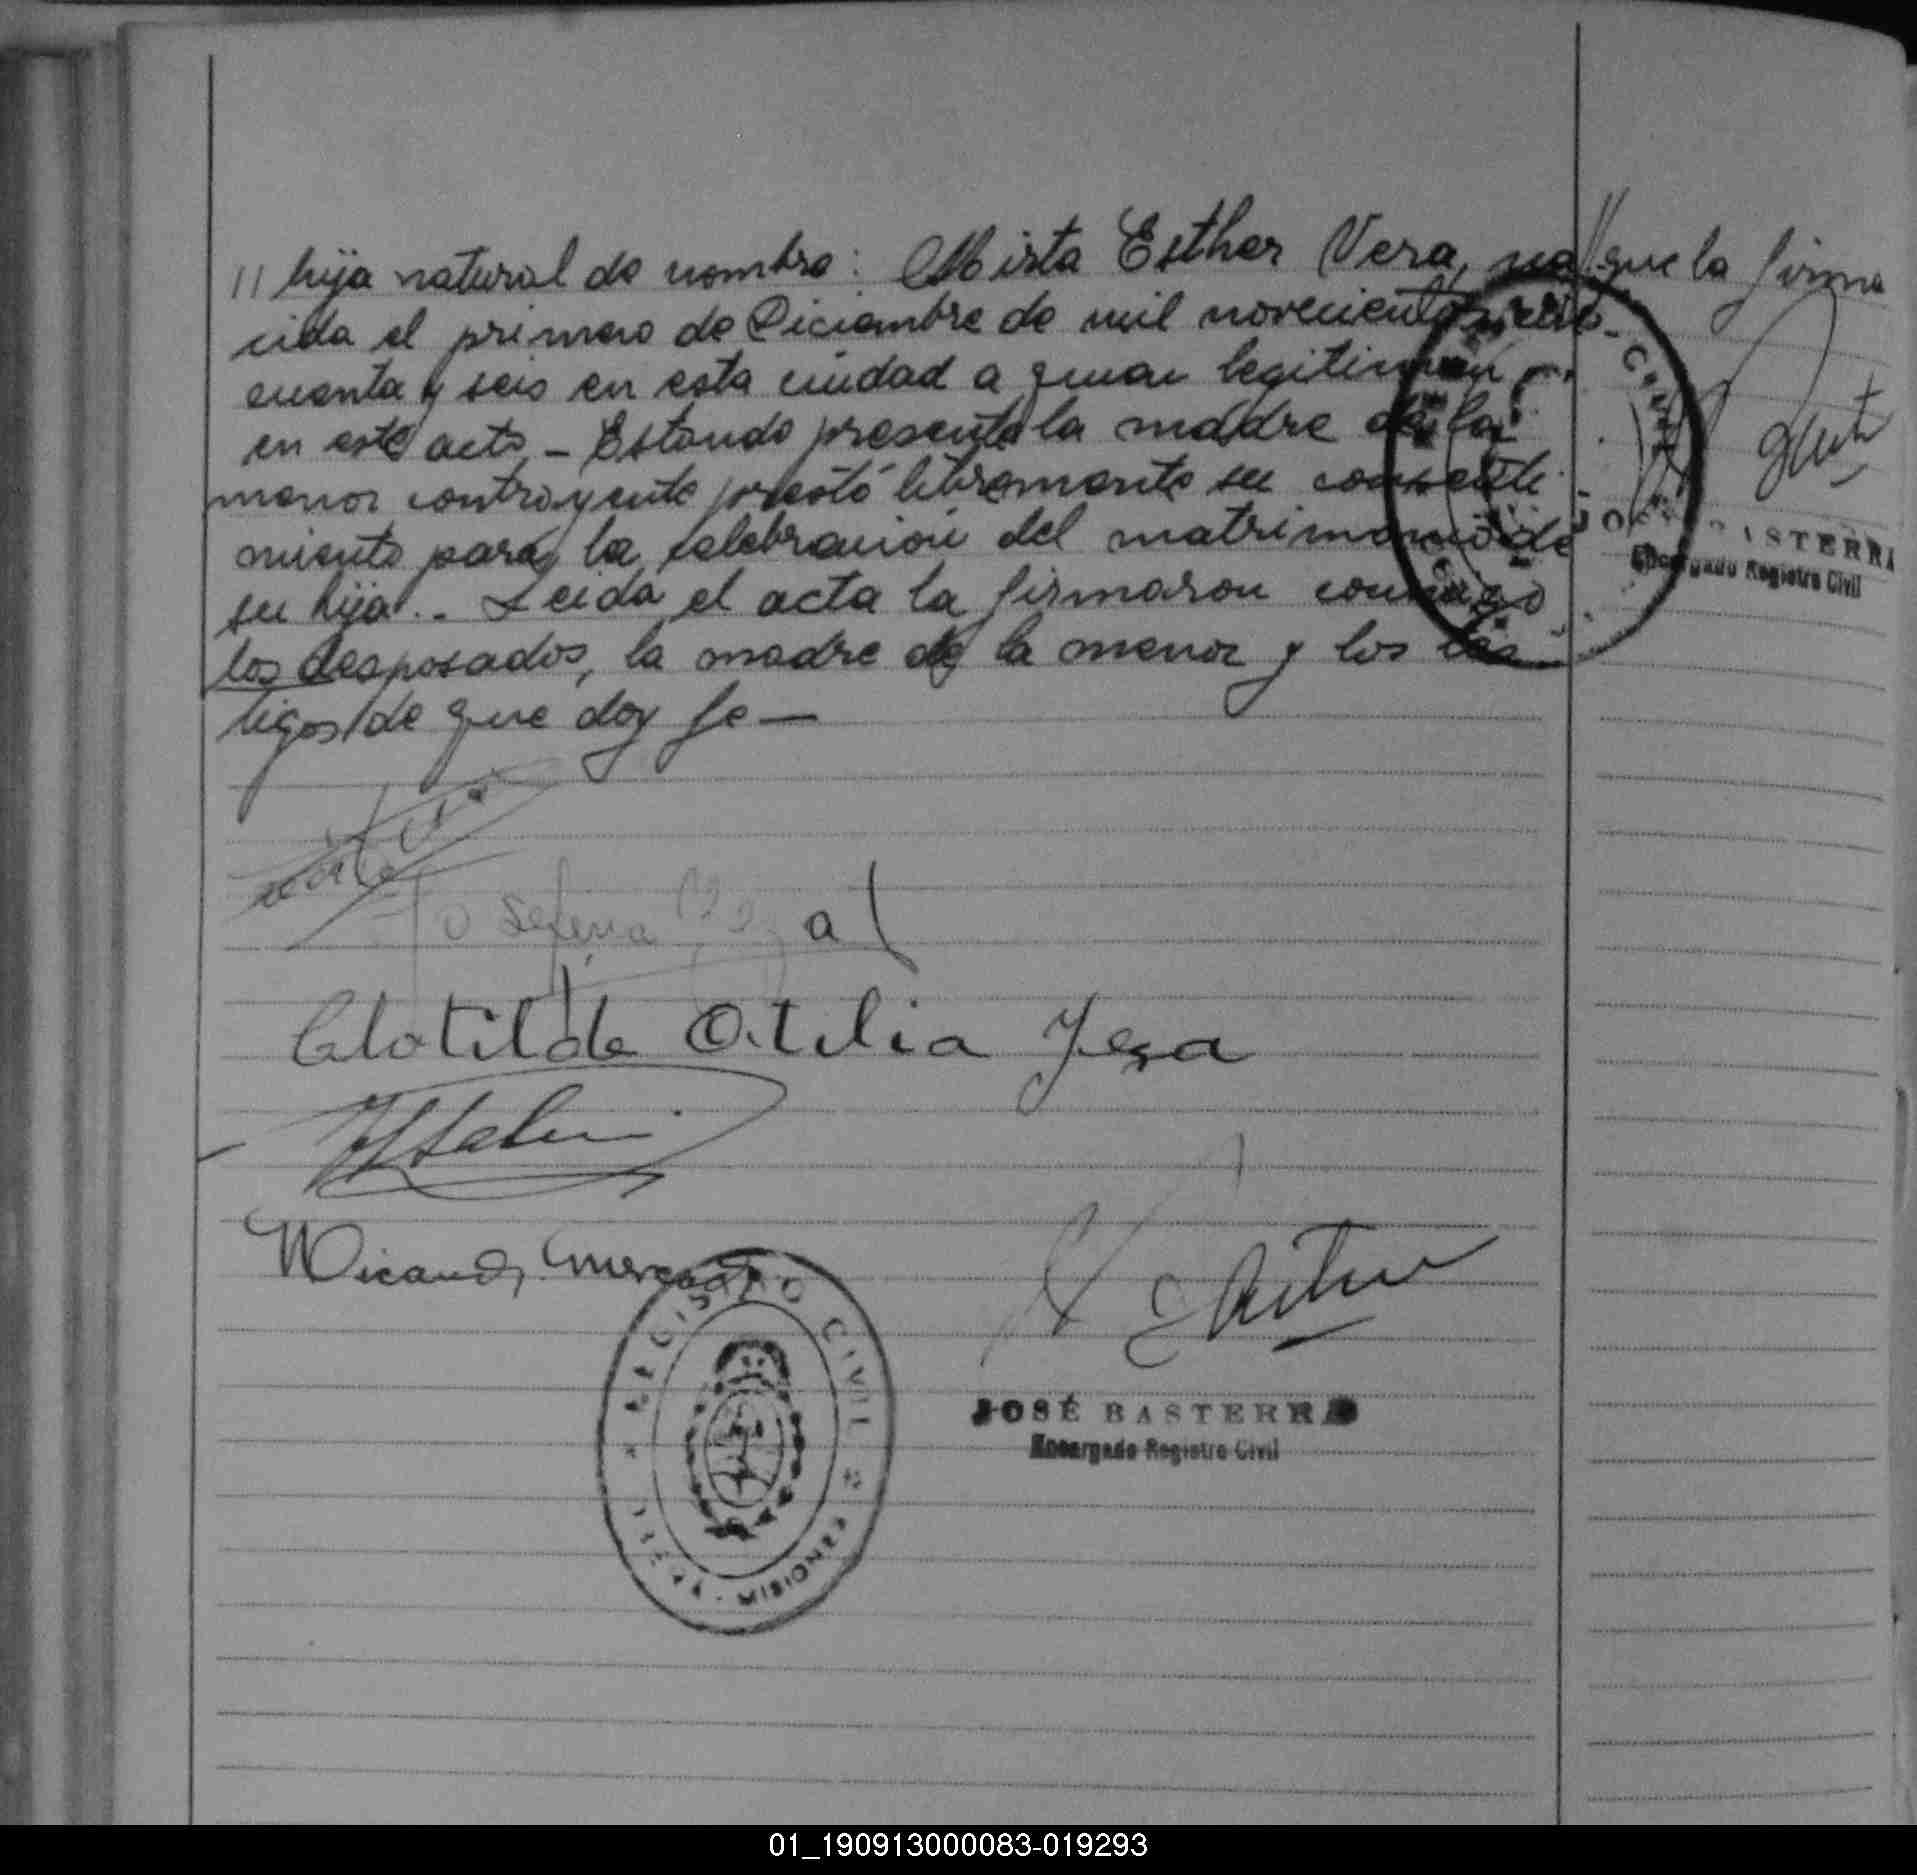 // hija natural de nombre: Mirta Esther Vera, na
cida el primero de Diciembre de mil novecientos cin-
cuenta y seis en esta ciudad a quien legitiman
en este acto.- Estando presente la madre de la
menor contrayente prestó libremente su consenti-
miento para la celebración del matrimonio de
su hija.- Leida el acta la firmaron conmigo
los desposados, la madre de la menor y los tes
tigos de que doy fe —
// que la firma
JOSÉ BASTERRA
Encargado Registro Civil
Josefina
Clotilde Otilia
REGISTRO CIVIL
MISIONES
JOSÉ BASTERRA
Encargado Registro Civil
01_190913000083-019293